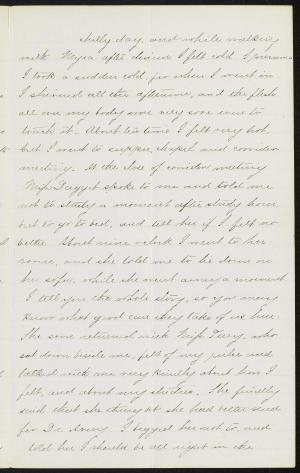 chilly day, and while walking
with Myra after dinner I felt cold. I presume
I took a sudden cold, for when I went in
I shivered all the afternoon, and the flesh
all over my body was very sore even to
touch it. About tea time I felt very hot,
but I went to supper, chapel and corridor
meeting. At the close of corridor meeting
Miss spoke to me and told me
not to study a moment after study hour
but to go to bed, and tell her if I felt no
better. About nine o'clock I went to her
room, and she told me to lie down on
her sofa, while she went away a moment.
I tell you the whole story, so you may
know what good care they take of us here.
She soon returned with Miss Terry, who
sat down beside me, felt of my pulse and
talked with me very kindly about how I
felt, and about my studies. She finally
said that she thought she had better send
for Dr. Avery. I begged her not to, and
told her I should be all right in the